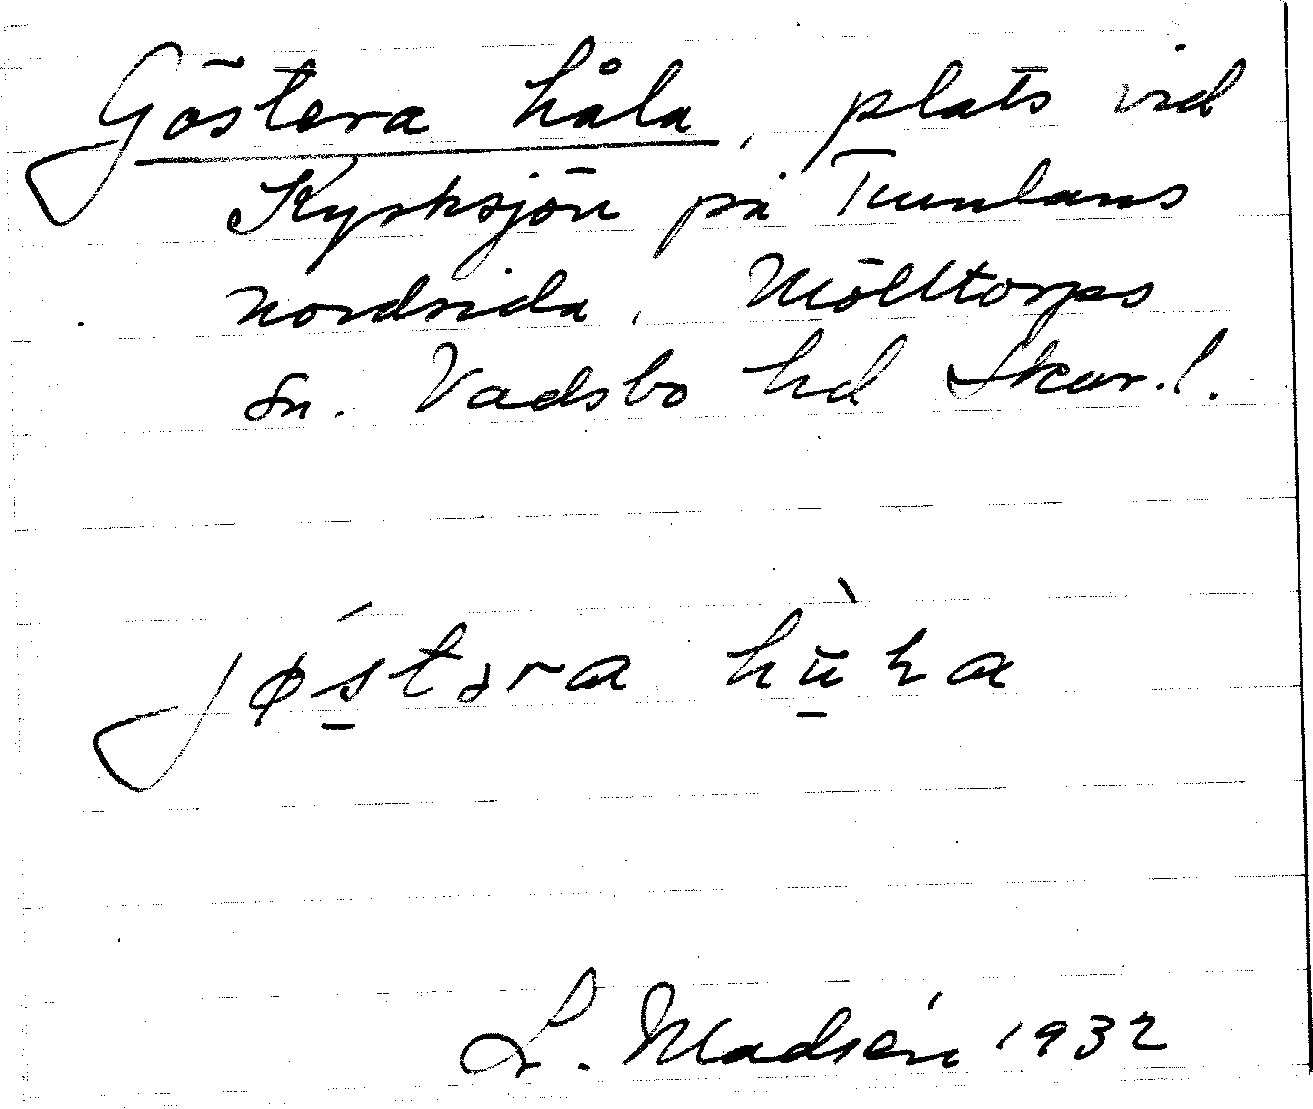 Göstera håla, plats vid
Kyrksjön på Tunlans
nordsida, Mölltorps
sn. Vadsbo hd Skar.l.
L. Madsén 1932